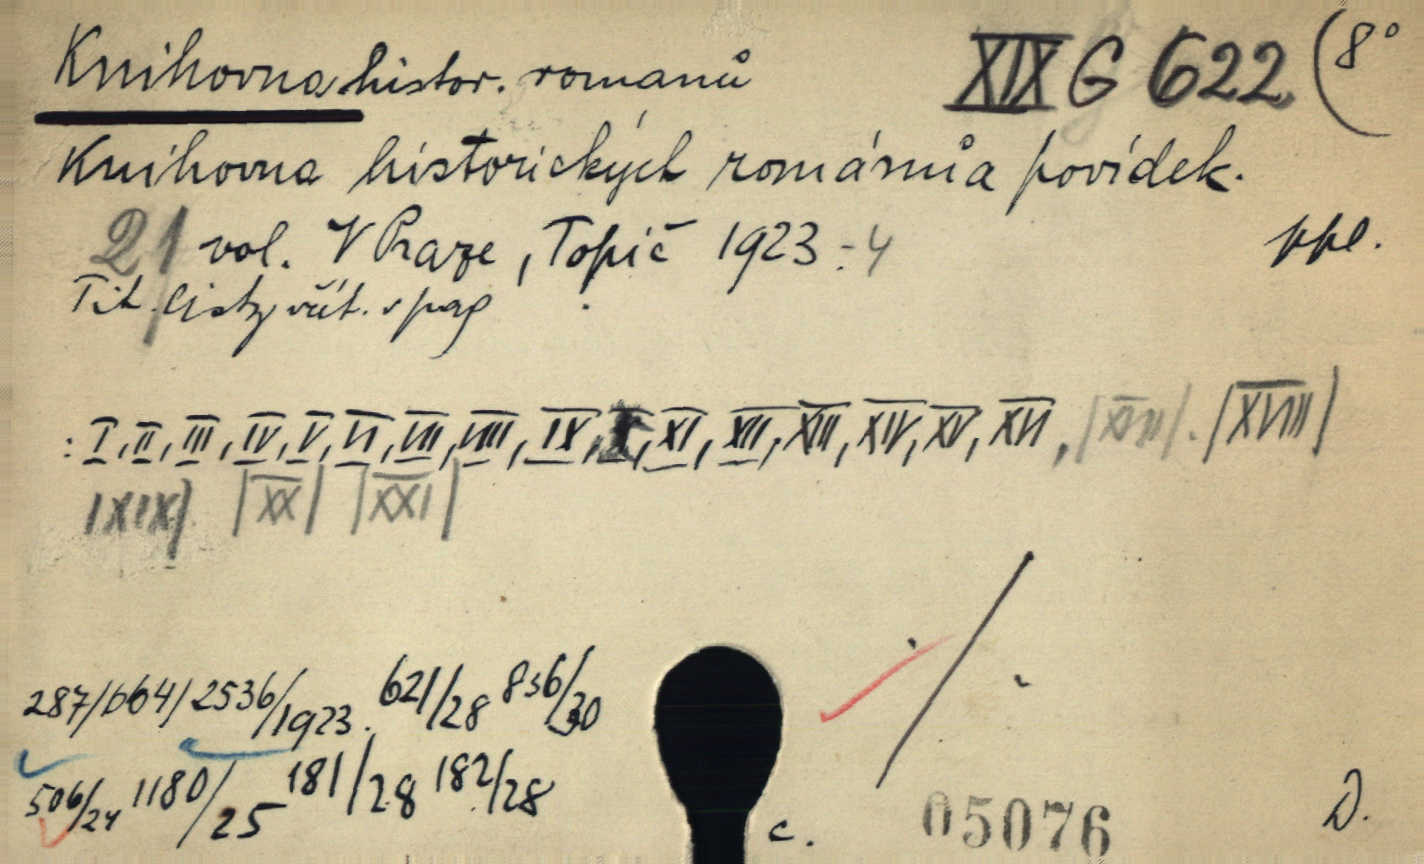 Knihovna histor. romanů XIX G 622 (8°
Knihovna historických románů a povídek.
21 vol. V Praze, Topič 1923-4 ppl.
Tit. listy vřít. v pag
: I, II, III, IV, V, VI, VII, VIII, IX, X, XI, XII, XIII, XIV, XV, XVI, |XVII|. |XVIII|
|XIX| |XX| |XXI|
287/664/2536/1923. 621/28 836/30
506/24 1180/25 181/28 182/28
c. 05076 D.